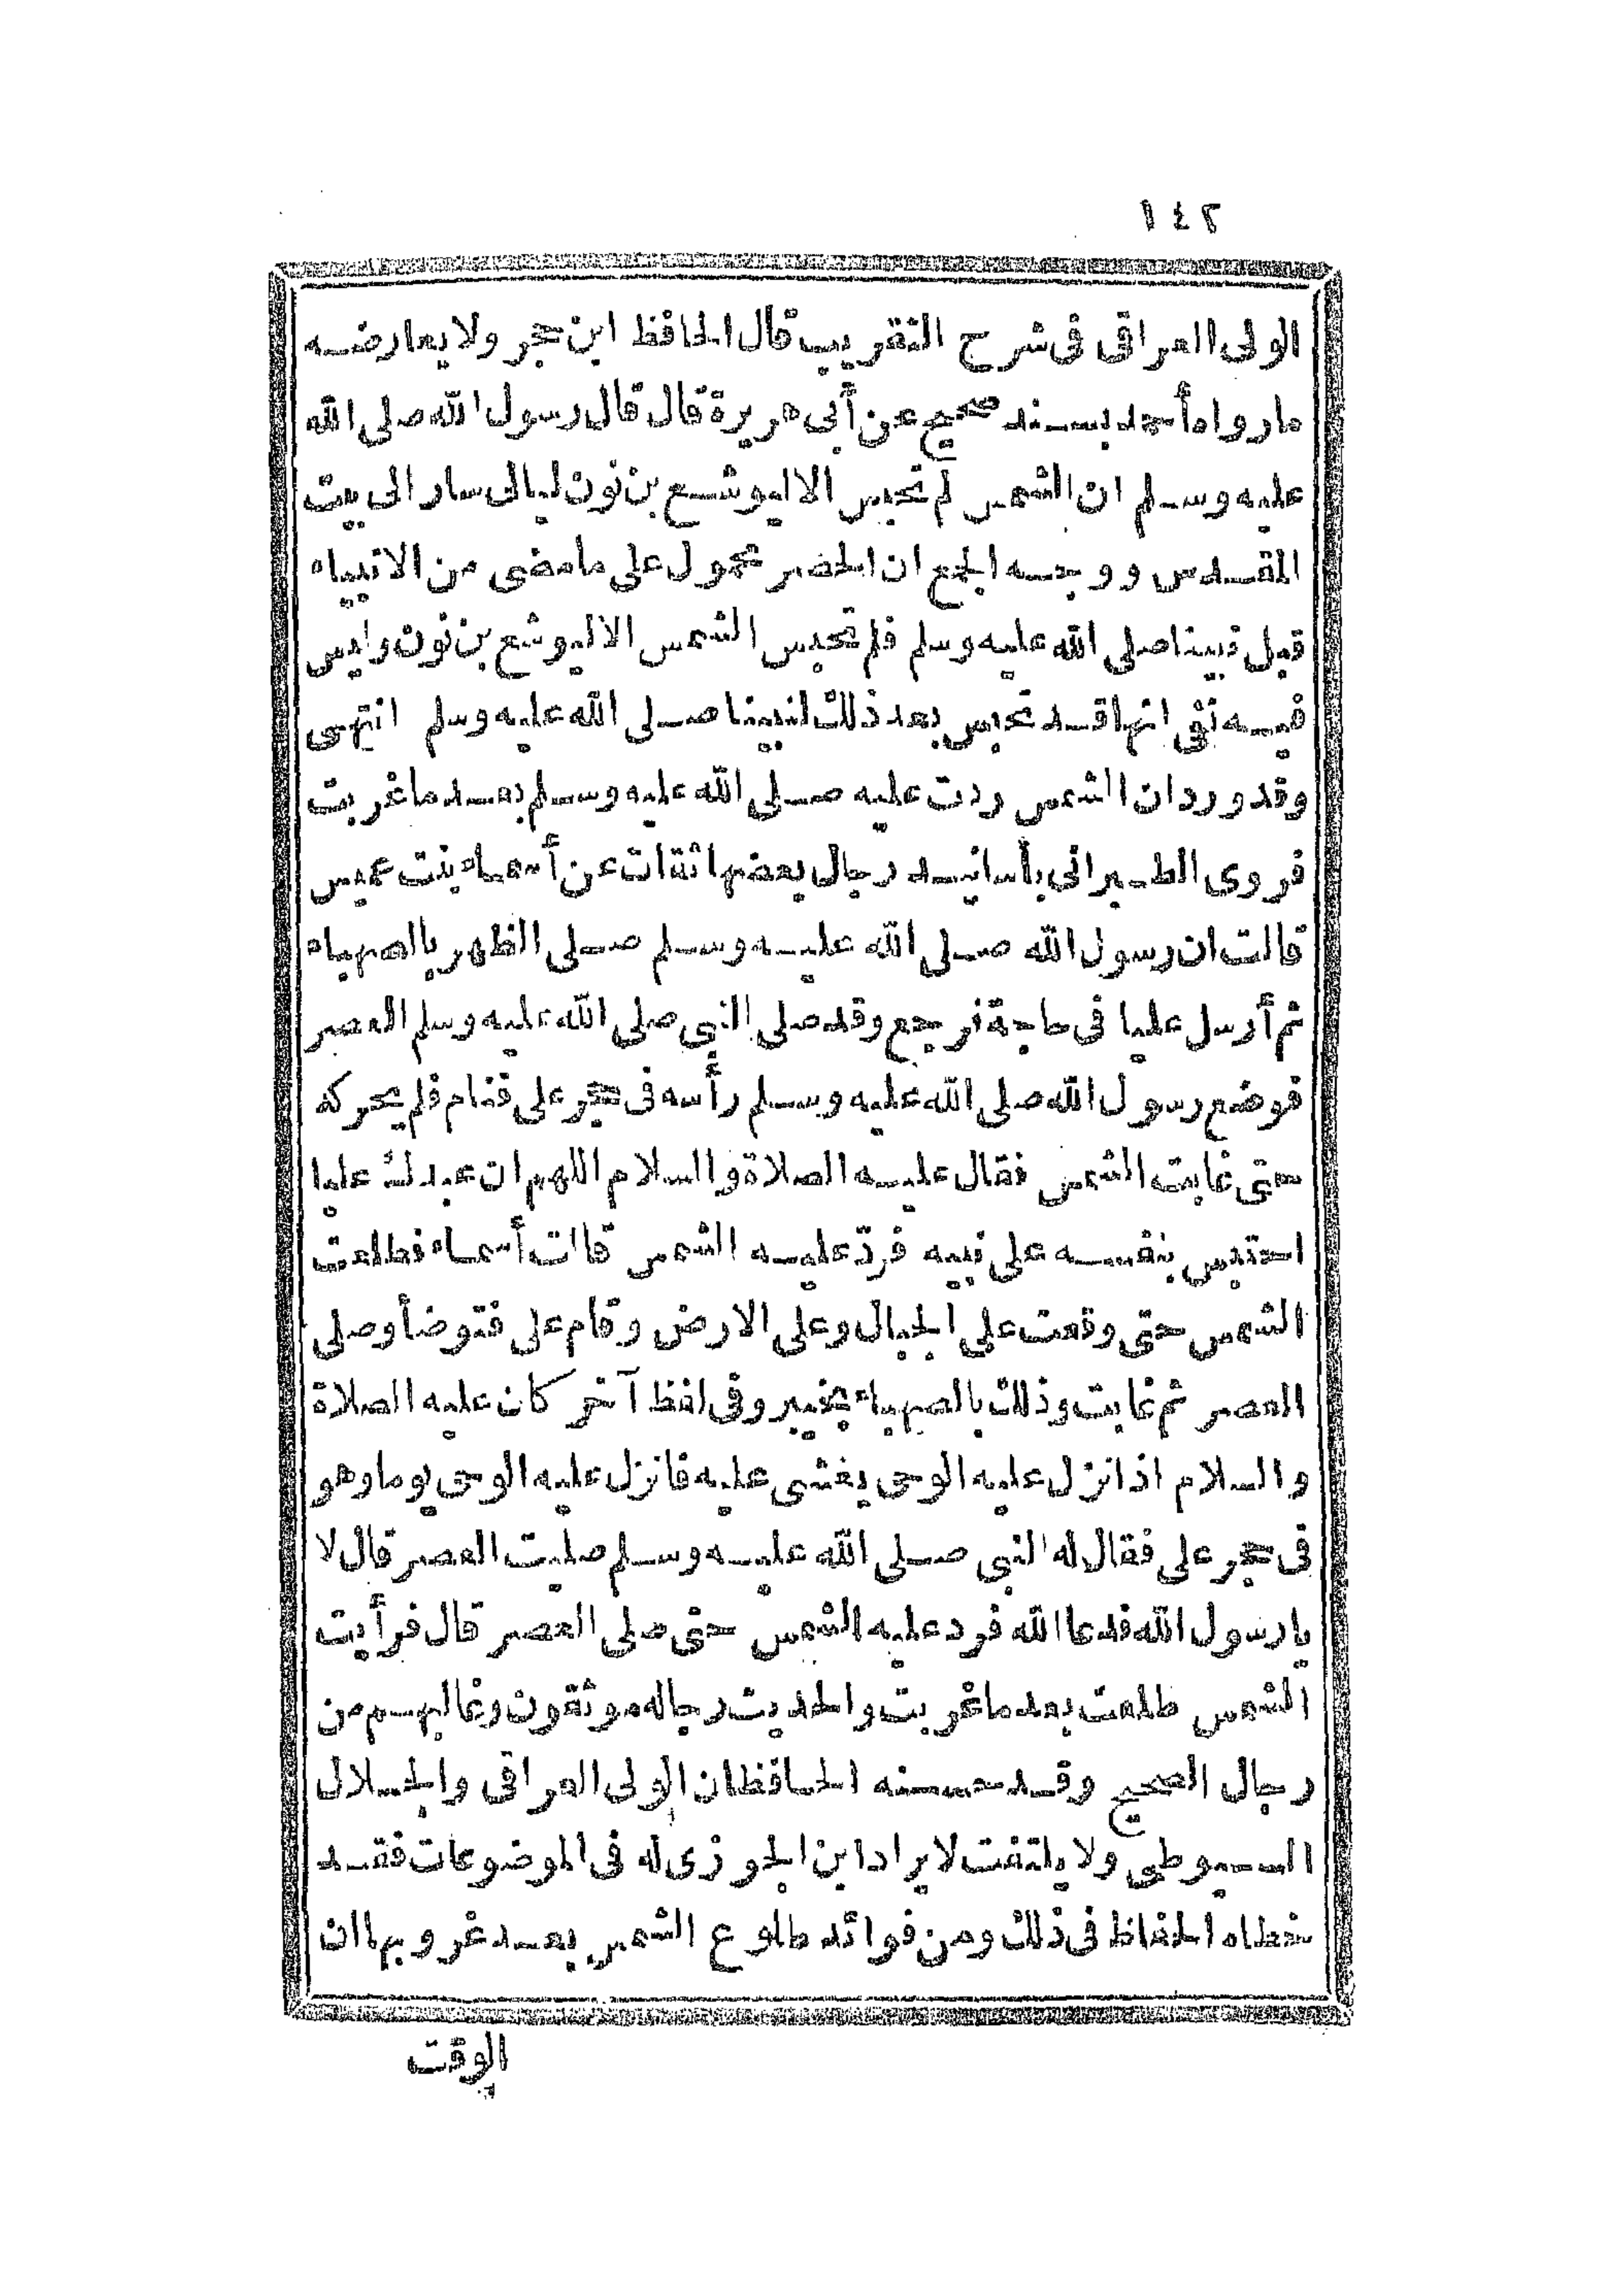 ١٤٢
الولى العراقى فى شرح التقريب قال الحافظ ابن حجر ولا يعارضه
مارواه أحمد بسند صحيح عن أبى هريرة قال قال رسول الله صلى الله
عليه وسلم ان الشمس لم تحبس الا ليوشع بن نون ليالى سار الى بيت
المقدس ووجه الجمع ان الحصر محمول على مامضى من الانبياء
قبل نبينا صلى الله عليه وسلم فلم تحبس الشمس الا ليوشع بن نون وليس
فيه نفى انها قد تحبس بعد ذلك لنبينا صلى الله عليه وسلم انتهى
وقد ورد ان الشمس ردت عليه صلى الله عليه وسلم بعد ماغربت
فروى الطبرانى بأسانيد رجال بعضها ثقات عن أسماء بنت عميس
قالت ان رسول الله صلى الله عليه وسلم صلى الظهر بالصهباء
ثم أرسل عليا فى حاجة فرجع وقد صلى النبى صلى الله عليه وسلم العصر
فوضع رسول الله صلى الله عليه وسلم رأسه فى حجر على فنام فلم يحركه
حتى غابت الشمس فقال عليه الصلاة والسلام اللهم ان عبدك عليا
احتبس بنفسه على نبيه فردّ عليه الشمس قالت أسماء فطلعت
الشمس حتى وقعت على الجبال وعلى الارض وقام على فتوضأ وصلى
العصر ثم غابت وذلك بالصهباء بخيبر وفى لفظ آخر كان عليه الصلاة
والسلام اذا نزل عليه الوحى يغشى عليه فانزل عليه الوحى يوما وهو
فى حجر على فقال له النبى صلى الله عليه وسلم صليت العصر قال لا
يارسول الله فدعا الله فرد عليه الشمس حتى صلى العصر قال فرأيت
الشمس طلعت بعد ماغربت والحديث رجاله موثقون وغالبهم من
رجال الصحيح وقد حسنه الحافظان الولى العراقى والجلال
السيوطى ولا يلتفت لايراد ابن الجوزى له فى الموضوعات فقد
خطاه الحفاظ فى ذلك ومن فوائد طلوع الشمس بعد غروبها ان
الوقت